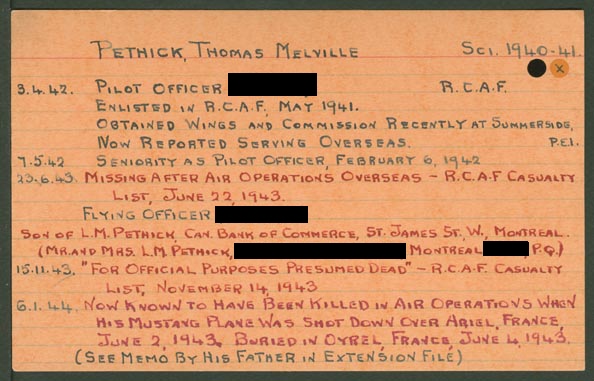 PETHICK, THOMAS MELVILLE SCI. 1940-41.
x
3.4.42. PILOT OFFICER R.C.A.F.
ENLISTED IN R.C.A.F. MAY 1941.
OBTAINED WINGS AND COMMISSION RECENTLY AT SUMMERSIDE,
NOW REPORTED SERVING OVERSEAS. P.E.I.
7.5.42 SENIORITY AS PILOT OFFICER, FEBRUARY 6, 1942
23.6.43. MISSING AFTER AIR OPERATIONS OVERSEAS – R.C.A.F CASUALTY
LIST, JUNE 22, 1943.
FLYING OFFICER
SON OF L.M. PETHICK, CAN. BANK OF COMMERCE, ST. JAMES ST. W., MONTREAL.
(MR. AND MRS. L.M. PETHICK, MONTREAL , P.Q.)
15.11.43. "FOR OFFICIAL PURPOSES PRESUMED DEAD" – R.C.A.F. CASUALTY
LIST, NOVEMBER 14, 1943
6.1.44. NOW KNOWN TO HAVE BEEN KILLED IN AIR OPERATIONS WHEN
HIS MUSTANG PLANE WAS SHOT DOWN OVER ARIEL, FRANCE,
JUNE 2, 1943. BURIED IN OYREL, FRANCE, JUNE 4, 1943.
(SEE MEMO BY HIS FATHER IN EXTENSION FILE)